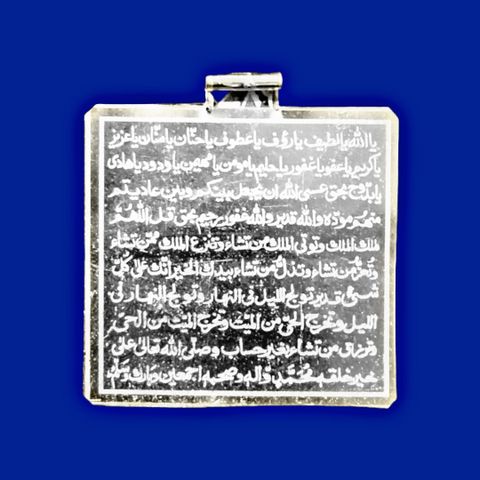 يا الله يا لطيف يا رؤف يا عطوف يا حنّان يا منّان يا عزيز
يا كريم يا عفو يا غفور يا حليم يا مومن يا مهيمن يا ودود يا هادي
بحق عسى الله ان يجعل بينكم وبين الذين عاديتم
منهم مودة والله قدير والله غفور رحيم بحق قل اللهم
مالك الملك توتي الملك من تشاء وتنزع الملك ممّن تشاء
وتعزّ من تشاء وتذلّ من تشاء بيدك الخير انك على كل
شئ قدير تولج الليل في النهار وتولج النهار في
الليل وتخرج الحي من الميت وتخرج الميت من الحي
وترزق من تشاء بغير حساب وصلى الله تعالى على
خير خلقه محمّد وآله وصحبه اجمعين